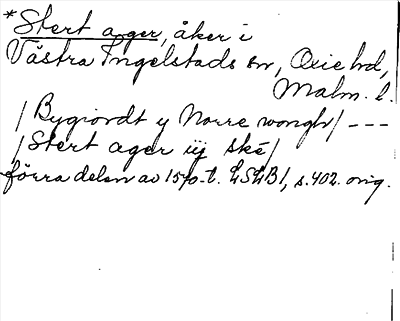 *Stert ager, åker i
Västra Ingelstads sn, Oxie hd,
Malm. l.
/Bygiordt y Norre wongh/ ---
/Stert ager iij ske/
förra delen av 1570-t. LSLB1, s. 402. orig.